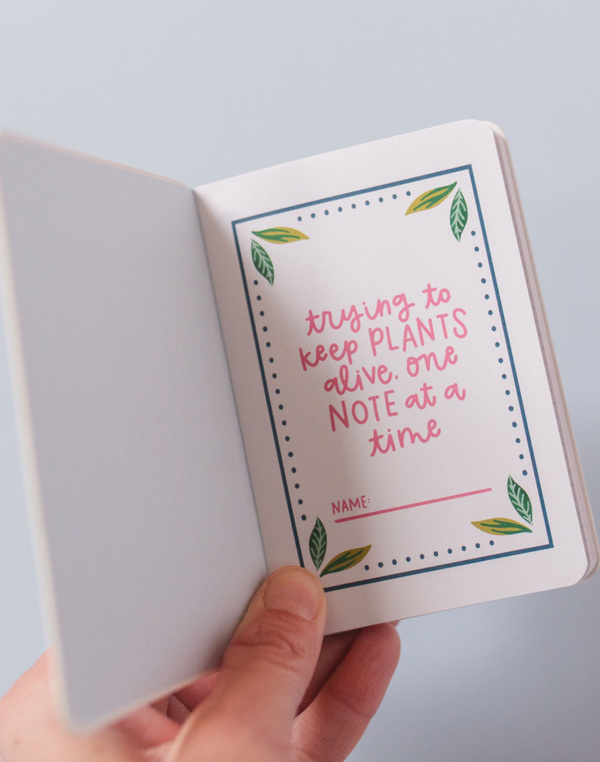 trying to
keep PLANTS
alive. one
NOTE at a
time
NAME: